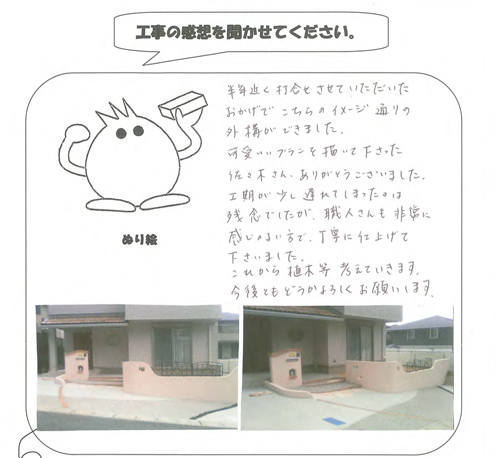 工事の感想を聞かせてください。
半年近く打合せさせていただいた
おかげでこちらのイメージ通りの
外構ができました。
可愛いいプランを描いて下さった
佐々木さん、ありがとうございました。
工期が少し遅れてしまったのは
残念でしたが、職人さんも非常に
感じのよい方で、丁寧に仕上げて
下さいました。
これから植木等考えていきます。
今後ともどうかよろしくお願いします。
ぬり絵